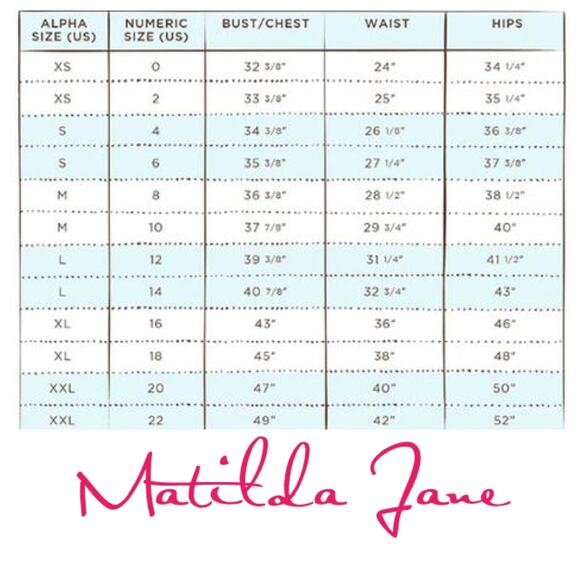 ALPHA SIZE (US) NUMERIC SIZE (US) BUST/CHEST WAIST HIPS
XS 0 32 3/8" 24" 34 1/4"
XS 2 33 3/8" 25" 35 1/4"
S 4 34 3/8" 26 1/8" 36 3/8"
S 6 35 3/8" 27 1/4" 37 3/8"
M 8 36 3/8" 28 1/2" 38 1/2"
M 10 37 7/8" 29 3/4" 40"
L 12 39 3/8" 31 1/4" 41 1/2"
L 14 40 7/8" 32 3/4" 43"
XL 16 43" 36" 46"
XL 18 45" 38" 48"
XXL 20 47" 40" 50"
XXL 22 49" 42" 52"
Matilda Jane